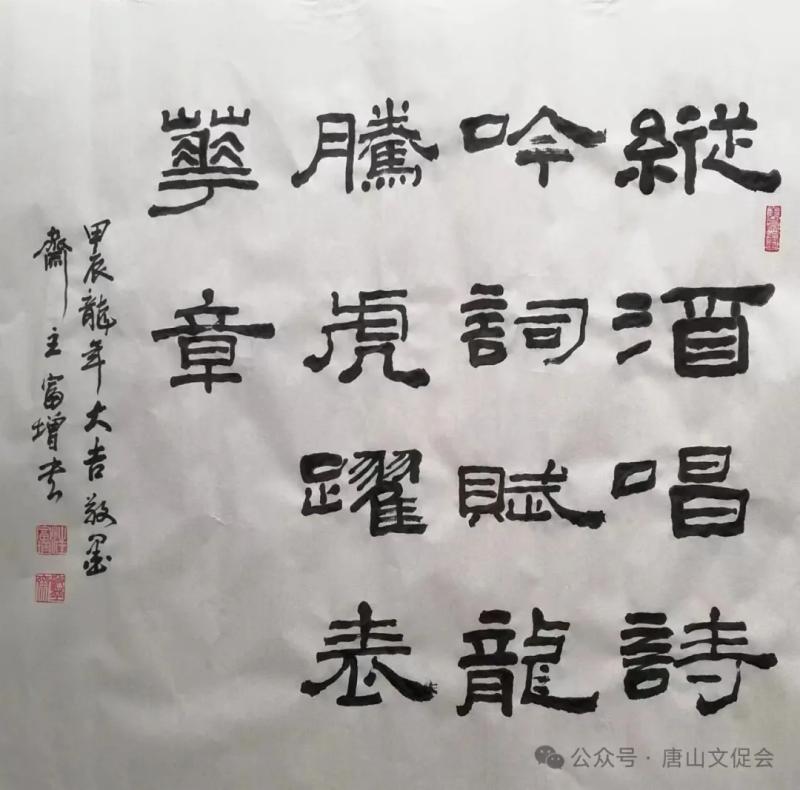 縱酒唱詩
吟詞賦龍
騰虎躍表
華章
甲辰龍年大吉敬墨
齋主富增书
公众号·唐山文促会